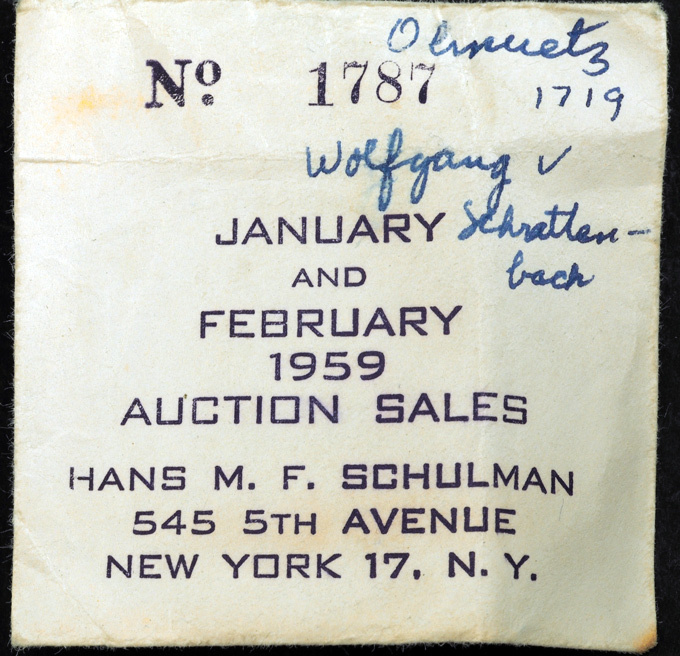 Olmuetz
Nº 1787
1719
Wolfgang v
Schratten-
bach
JANUARY
AND
FEBRUARY
1959
AUCTION SALES
HANS M. F. SCHULMAN
545 5TH AVENUE
NEW YORK 17, N. Y.